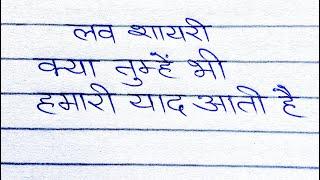 लव शायरी
क्या तुम्हें भी
हमारी याद आती है